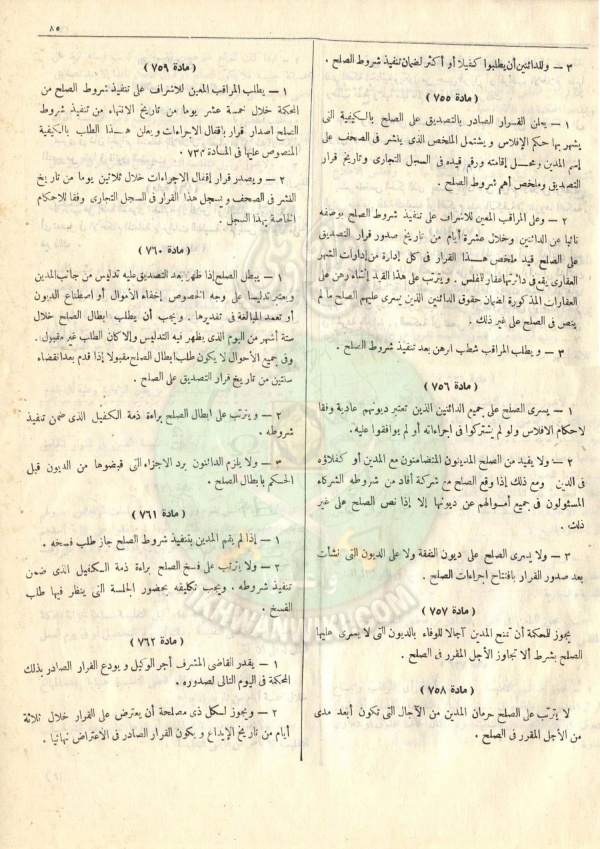 ٨٥
٣ — وللدائنين أن يطلبوا كفيلا أو أكثر لضمان تنفيذ شروط الصلح .
( مادة ٧٥٥ )
١ — يعلن القرار الصادر بالتصديق على الصلح بالكيفية التى
يشهر بها حكم الإفلاس ويشتمل الملخص الذى ينشر فى الصحف على
إسم المدين ومحل إقامته ورقم قيده فى السجل التجارى وتاريخ قرار
التصديق وملخص أهم شروط الصلح .
٢ — وعلى المراقب المعين للاشراف على تنفيذ شروط الصلح بوصفه
نائبا عن الدائنين وخلال عشرة أيام من تاريخ صدور قرار التصديق
على الصلح قيد ملخص هــذا القرار فى كل إدارة من إدارات الشهر
العقارى يقع فى دائرتها عقار للمفلس . ويترتب على هذا القيد إنشاء رهن على
العقارات المذكورة لضمان حقوق الدائنين الذين يسرى عليهم الصلح ما لم
ينص فى الصلح على غير ذلك .
٣ — ويطلب المراقب شطب الرهن بعد تنفيذ شروط الصلح .
( مادة ٧٥٦ )
١ — يسرى الصلح على جميع الدائنين الذين تعتبر ديونهم عادية وفقا
لاحكام الافلاس ولو لم يشتركوا فى اجراءاته أو لم يوافقوا عليه .
٢ — ولا يفيد من الصلح المدينون المتضامنون مع المدين أو كفلاؤه
فى الدين ومع ذلك إذا وقع الصلح مع شركة أفاد من شروطه الشركاء
المسئولون فى جميع أموالهم عن ديونها إلا إذا نص الصلح على غير
ذلك .
٣ — ولا يسرى الصلح على ديون النفقة ولا على الديون التى نشأت
بعد صدور القرار بافتتاح اجراءات الصلح .
( مادة ٧٥٧ )
يجوز للمحكمة أن تمنح المدين آجالا للوفاء بالديون التى لا يسرى عليها
الصلح بشرط ألا تجاوز الأجل المقرر فى الصلح .
( مادة ٧٥٨ )
لا يترتب على الصلح حرمان المدين من الآجال التى تكون أبعد مدى
من الأجل المقرر فى الصلح .
( مادة ٧٥٩ )
١ — يطلب المراقب المعين للاشراف على تنفيذ شروط الصلح من
المحكمة خلال خمسة عشر يوما من تاريخ الانتهاء من تنفيذ شروط
الصلح اصدار قرار بإقفال الاجراءات ويعلن هــذا الطلب بالكيفية
المنصوص عليها فى المــادة ٧٣٤ .
٢ — ويصدر قرار إقفال الاجراءات خلال ثلاثين يوما من تاريخ
النشر فى الصحف و يسجل هذا القرار فى السجل التجارى وفقا للاحكام
الخاصة بهذا السجل .
( مادة ٧٦٠ )
١ — يبطل الصلح إذا ظهر بعد التصديق عليه تدليس من جانب المدين
ويعتبر تدليسا على وجه الخصوص إخفاء الأموال أو اصطناع الديون
أو تعمد المبالغة فى تقديرها . ويجب أن يطلب ابطال الصلح خلال
ستة أشهر من اليوم الذى يظهر فيه التدليس وإلا كان الطلب غير مقبول .
وفى جميع الأحوال لا يكون طلب ابطال الصلح مقبولا إذا قدم بعد انقضاء
سنتين من تاريخ قرار التصديق على الصلح .
٢ — ويترتب على ابطال الصلح براءة ذمة الكفيل الذى ضمن تنفيذ
شروطه .
٣ — ولا يلزم الدائنون برد الاجزاء التى قبضوها من الديون قبل
الحكم بابطال الصلح .
( مادة ٧٦١ )
١ — إذا لم يقم المدين بتنفيذ شروط الصلح جاز طلب فسخه .
٢ — ولا يترتب على فسخ الصلح براءة ذمة الكفيل الذى ضمن
تنفيذ شروطه . ويجب تكليفه بحضور الجلسة التى ينظر فيها طلب
الفسخ .
( مادة ٧٦٢ )
١ — يقدر القاضى المشرف أجر الوكيل و يودع القرار الصادر بذلك
المحكمة فى اليوم التالى لصدوره .
٢ — ويجوز لكل ذى مصلحة أن يعترض على القرار خلال ثلاثة
أيام من تاريخ الإيداع و يكون القرار الصادر فى الاعتراض نهائيا .
IKHWANWIKI.COM